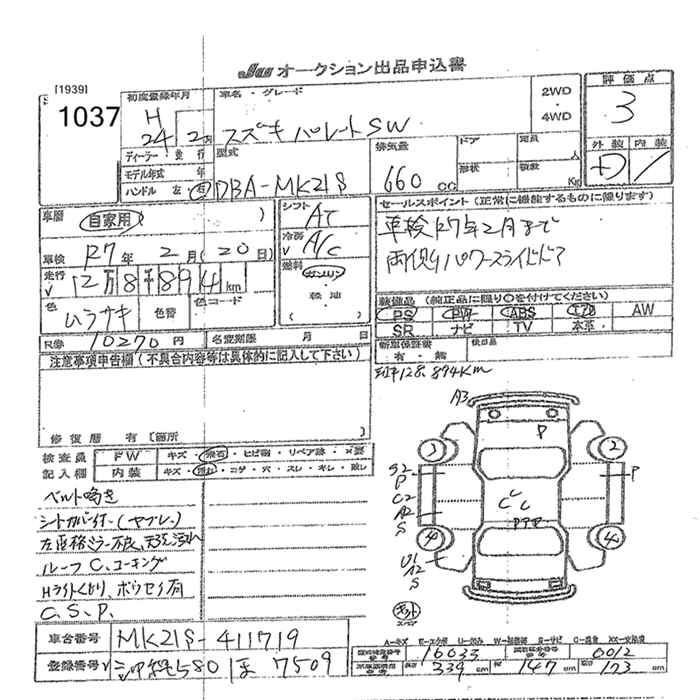 JU オークション出品申込書
[1939]
1037
初度登録年月
H
24 2月
車名・グレード
スズキ パレットSW
2WD
4WD
評価点
3
ディーラー・並行
モデル年式 年
ハンドル 左 右
型式
DBA-MK21S
排気量
660 cc
ドア
形状
定員 人
積載 Kg
外装 内装
車歴 自家用 ( )
シフト AT
冷房 A/C
車検 R7年 2月(20日)
走行 12万8千894km
燃料 ガソリン
軽油
色 ムラサキ 色替 色コード
R券 10270円 名変期限 月 日
セールスポイント(正常に機能するものに限ります)
車検R7年2月まで
両側パワースライドドア
装備品(純正品に限り○を付けてください)
PS PW ABS エアB AW
SR ナビ TV 本革
新車保証書 有・無 検印品
注意事項申告欄(不具合内容等は具体的に記入して下さい)
修復歴 有〔箇所 〕
検査員 FW キズ・飛石・ヒビ割・リペア跡・×要
記入欄 内装 キズ・汚れ・コゲ・穴・スレ・キレ・破レ
ベルト鳴き
シートカバー付(ヤブレ)
ルーフC、コーキング
C.S.P.
車台番号 MK21S-411719
登録番号 沖縄580 ほ 7509
128,894Km
A3
P
1
2
S2
P
C2
A2
S
P
C
L
C
PPP
4
4
U1
A2
S
スペア
A-キズ E-エクボ U-凹み W-補修跡 S-サビ C-腐食 XX-交換済
16033 0012
339cm 147cm 173cm